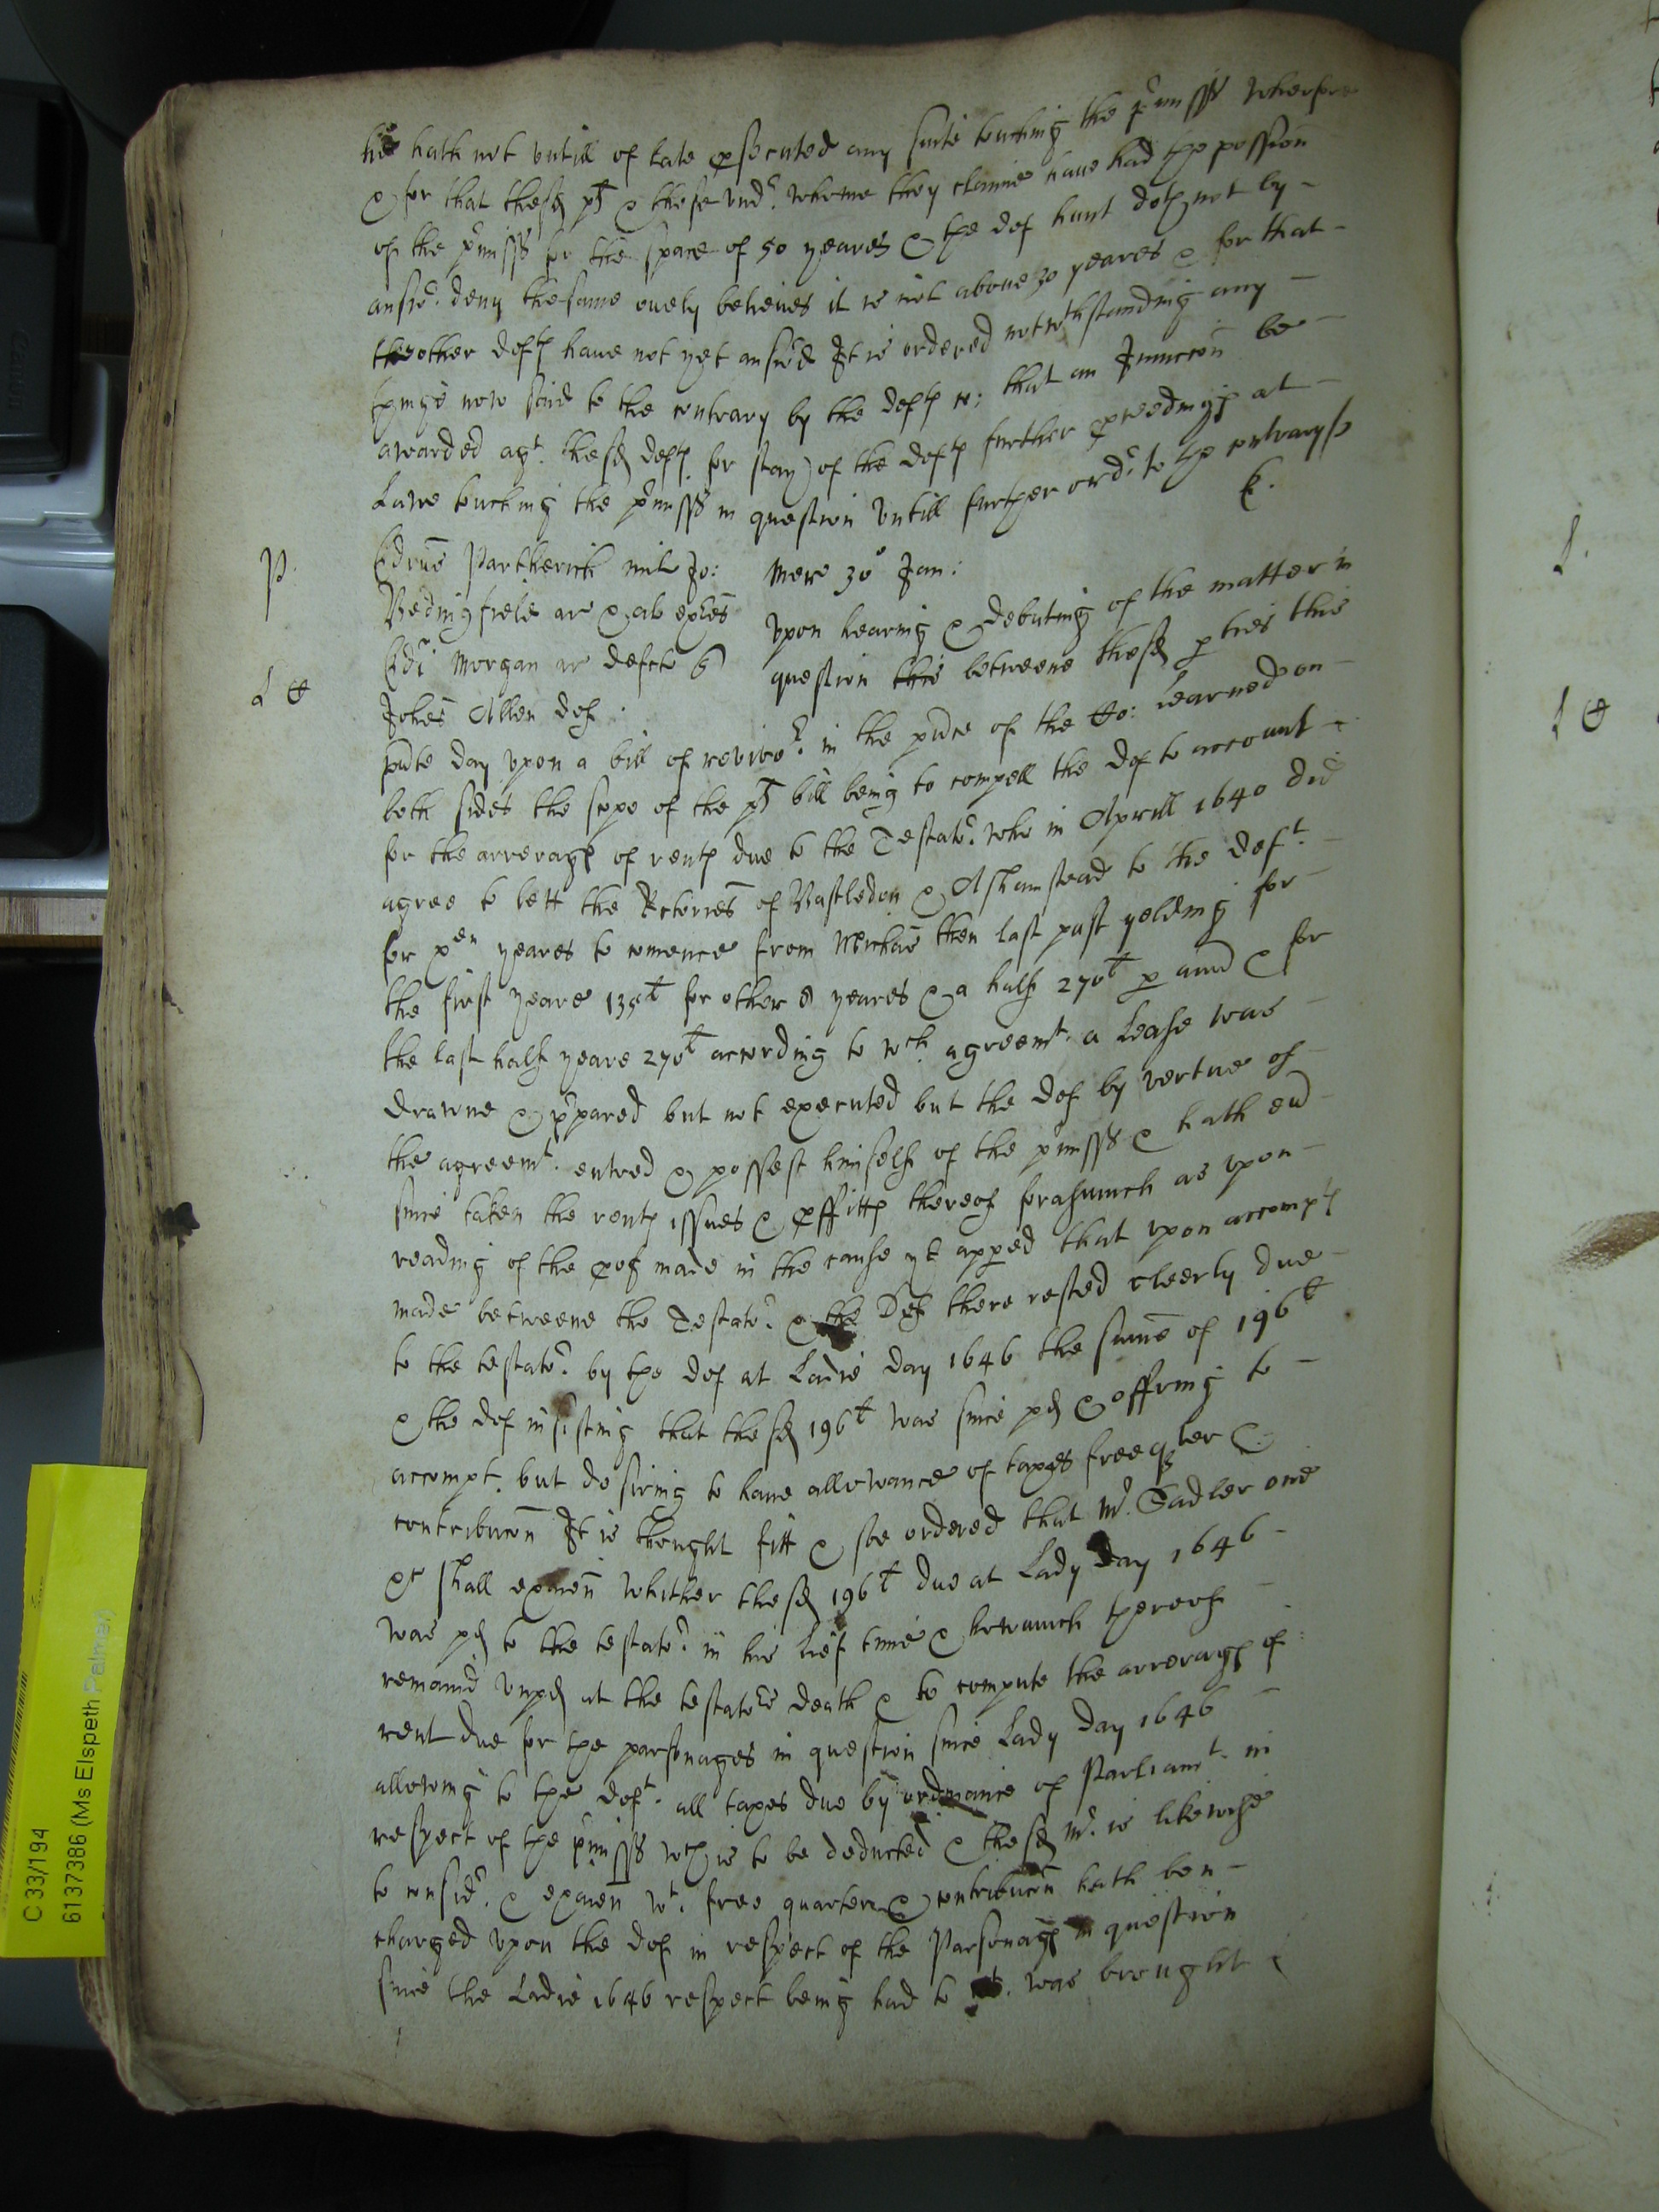 he hath not vntill of late psecuted any suite touching the pmisss Wherfore
& for that thesd plt & those vndr. whome they claime haue had the possion
of the pmisss for the space of 50 yeares & the def hunt doth not by
answr. deny the same onely beleiues it is not aboue 30 yeares & for that
the other defts haue not yet answrd It is ordered notwthstanding any
things now said to the contrary by the defts co: that an Iniuncon be
awarded agt. thesd defts for stay of the defts further pceedings at
Lawe touching the pmisss in question vntill further ordr. to the contrary
P.
Edrus Partherich mil Jo:
Bedingfield ar & al exes
Edi Morgan ar defcti
Johes Allen def.
Merc 30o Jan:
Vpon hearing & debating of the matter in
question this betweene thesd pties this
pnte day vpon a bill of revivor. in the pnce of the Co: Learned on
both sides the scope of the plt bill being to compell the def to account
for the arrerages of rents due to the Testator. who in Aprill 1640 did
agree to lett the Rctories of Basledon & Ashamstead to the deft.
for xen yeares to comence from Michas then last past yelding for
the first yeare 135l for other 8 yeares & a half 270l p annu & for
the last half yeare 270l according to wch agreemt. a Lease was
drawne & ppared but not executed but the def by vertue of
the agreemt. entred & possest himselfe of the pmisss & hath eu
since taken the rents issues & pffitts thereof forasmuch as vpon
reading of the pofs made in the cause yt apped that vpon accompts
made betweene the Testator. & the Def there rested cleerly due
to the testator. by the def at Ladie day 1646 the sume of 196l
& the def insisting that thesd 196l was since pd & offring to
accompt. but desiring to haue allowance of taxes free qter &
contribucon It is thought fitt & soe ordered that Mr. Sadler one
&c shall examen whither thesd 196l due at Lady day 1646
was pd to the testator. in his lief time & howmuch thereof
remaind vnpd at the testators death & to compute the arrerages of
rent due for the parsonages in question since Lady day 1646
allowing to the deft. all taxes due by ordinance of Parliamt. in
respect of the pmisss wch is to be deducted & thesd Mr. is likewise
to considr. & examen wt. free quarter & contribucon hath ben
charged vpon the def in respect of the Parsonages in question
since the Ladie 1646 respect being had to wt. was brought
C 33/194
6137386 (Ms Elspeth Palmer)